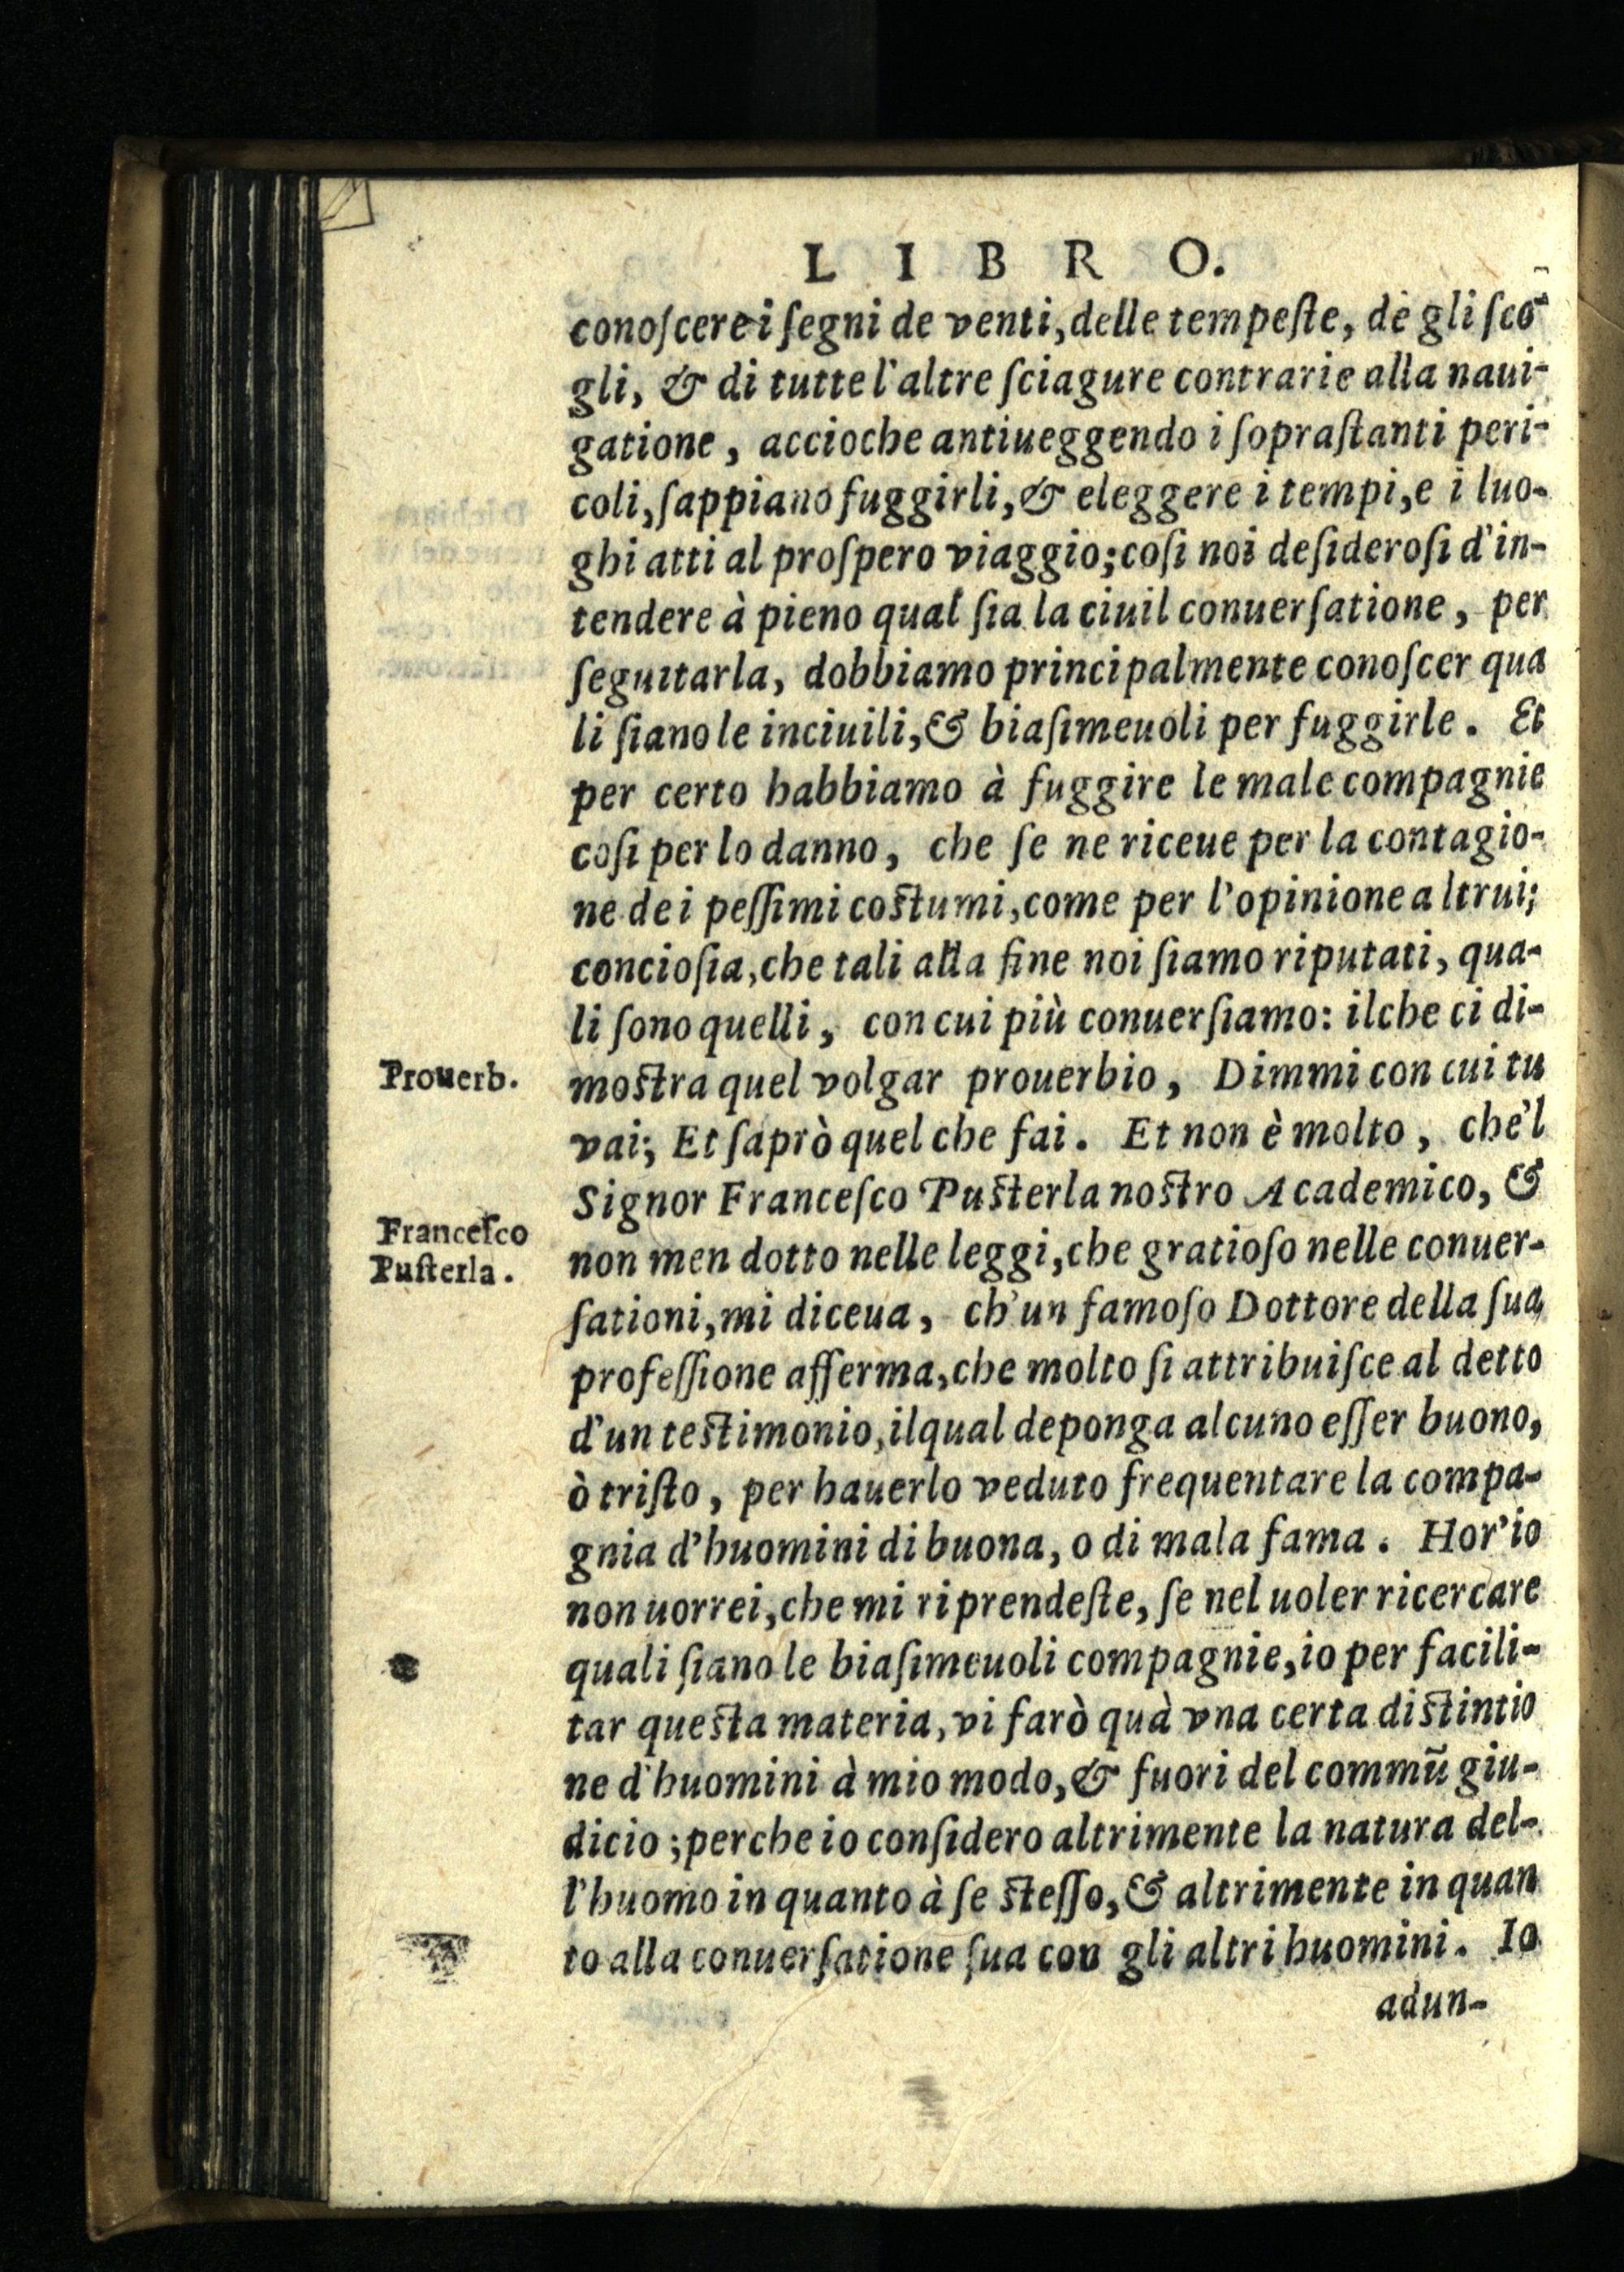 LIBRO.
conoſcere i ſegni de venti, delle tempeſte, de gli ſco-
gli, & di tutte l'altre ſciagure contrarie alla naui-
gatione, accioche antiueggendo i ſopraſtanti peri-
coli, ſappiano fuggirli, & eleggere i tempi, e i luo-
ghi atti al proſpero viaggio; coſi noi deſideroſi d'in-
tendere à pieno qual ſia la ciuil conuerſatione, per
ſeguitarla, dobbiamo principalmente conoſcer qua
li ſiano le inciuili, & biaſimeuoli per fuggirle. Et
per certo habbiamo à fuggire le male compagnie
coſi per lo danno, che ſe ne riceue per la contagio-
ne de i peſſimi coſtumi, come per l'opinione altrui;
concioſia, che tali alla fine noi ſiamo riputati, qua-
li ſono quelli, con cui più conuerſiamo: ilche ci di-
Prouerb.
moſtra quel volgar prouerbio, Dimmi con cui tu
vai; Et ſaprò quel che fai. Et non è molto, che'l
Signor Franceſco Puſterla noſtro Academico, &
Franceſco
Puſterla.
non men dotto nelle leggi, che gratioſo nelle conuer-
ſationi, mi diceua, ch'un famoſo Dottore della ſua
profeſſione afferma, che molto ſi attribuiſce al detto
d'un teſtimonio, ilqual deponga alcuno eſſer buono,
ò triſto, per hauerlo veduto frequentare la compa-
gnia d'huomini di buona, o di mala fama. Hor'io
non uorrei, che mi riprendeſte, ſe nel uoler ricercare
quali ſiano le biaſimeuoli compagnie, io per facili-
tar queſta materia, vi farò quà vna certa diſtintio
ne d'huomini à mio modo, & fuori del commũ giu-
dicio; perche io conſidero altrimente la natura del-
l'huomo in quanto à ſe ſteſſo, & altrimente in quan
to alla conuerſatione ſua con gli altri huomini. Io
adun-